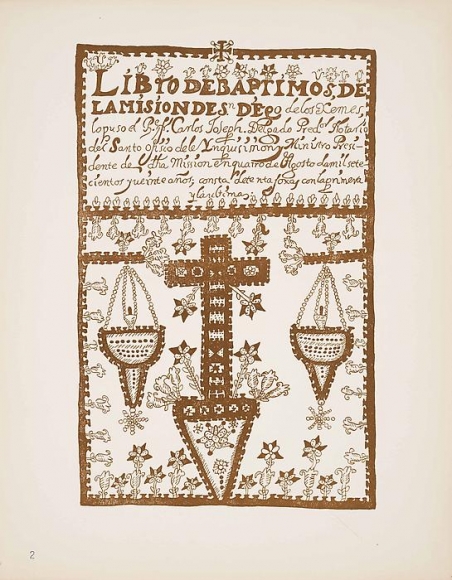 LIBrO DE BAPTIMOS, DE
LA MISION DE Sn DIEgO de los Xemes,
lo puso el P. Fr. Carlos Joseph. Delgado Pred.or Notario
del Santo ofiso dela Ynquisision y Ministro Presi-
dente de dha Mission en quatro de Agosto de mil sete
cientos y veinte años, consta de
y la ultima.
2